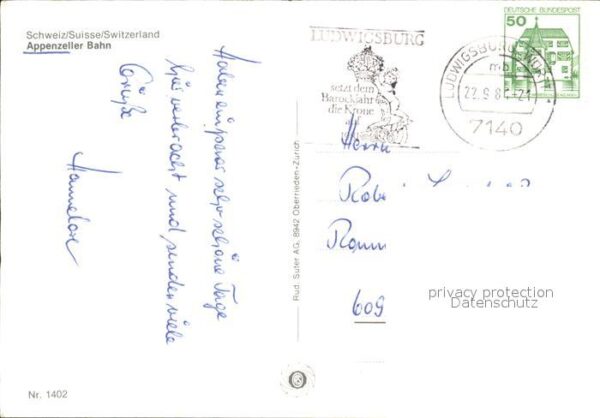 Schweiz/Suisse/Switzerland
Appenzeller Bahn
Haben ein paar sehr schöne Tage
hier verbracht und senden viele
Grüße
Hannelore
Nr. 1402
Rud. Suter AG, 8942 Oberrieden-Zürich
LUDWIGSBURG
setzt dem
Barockjahr
die Krone
auf
DEUTSCHE BUNDESPOST
50
LUDWIGSBURG
mb
22.9.8 -21
7140
Herrn
609
privacy protection
Datenschutz